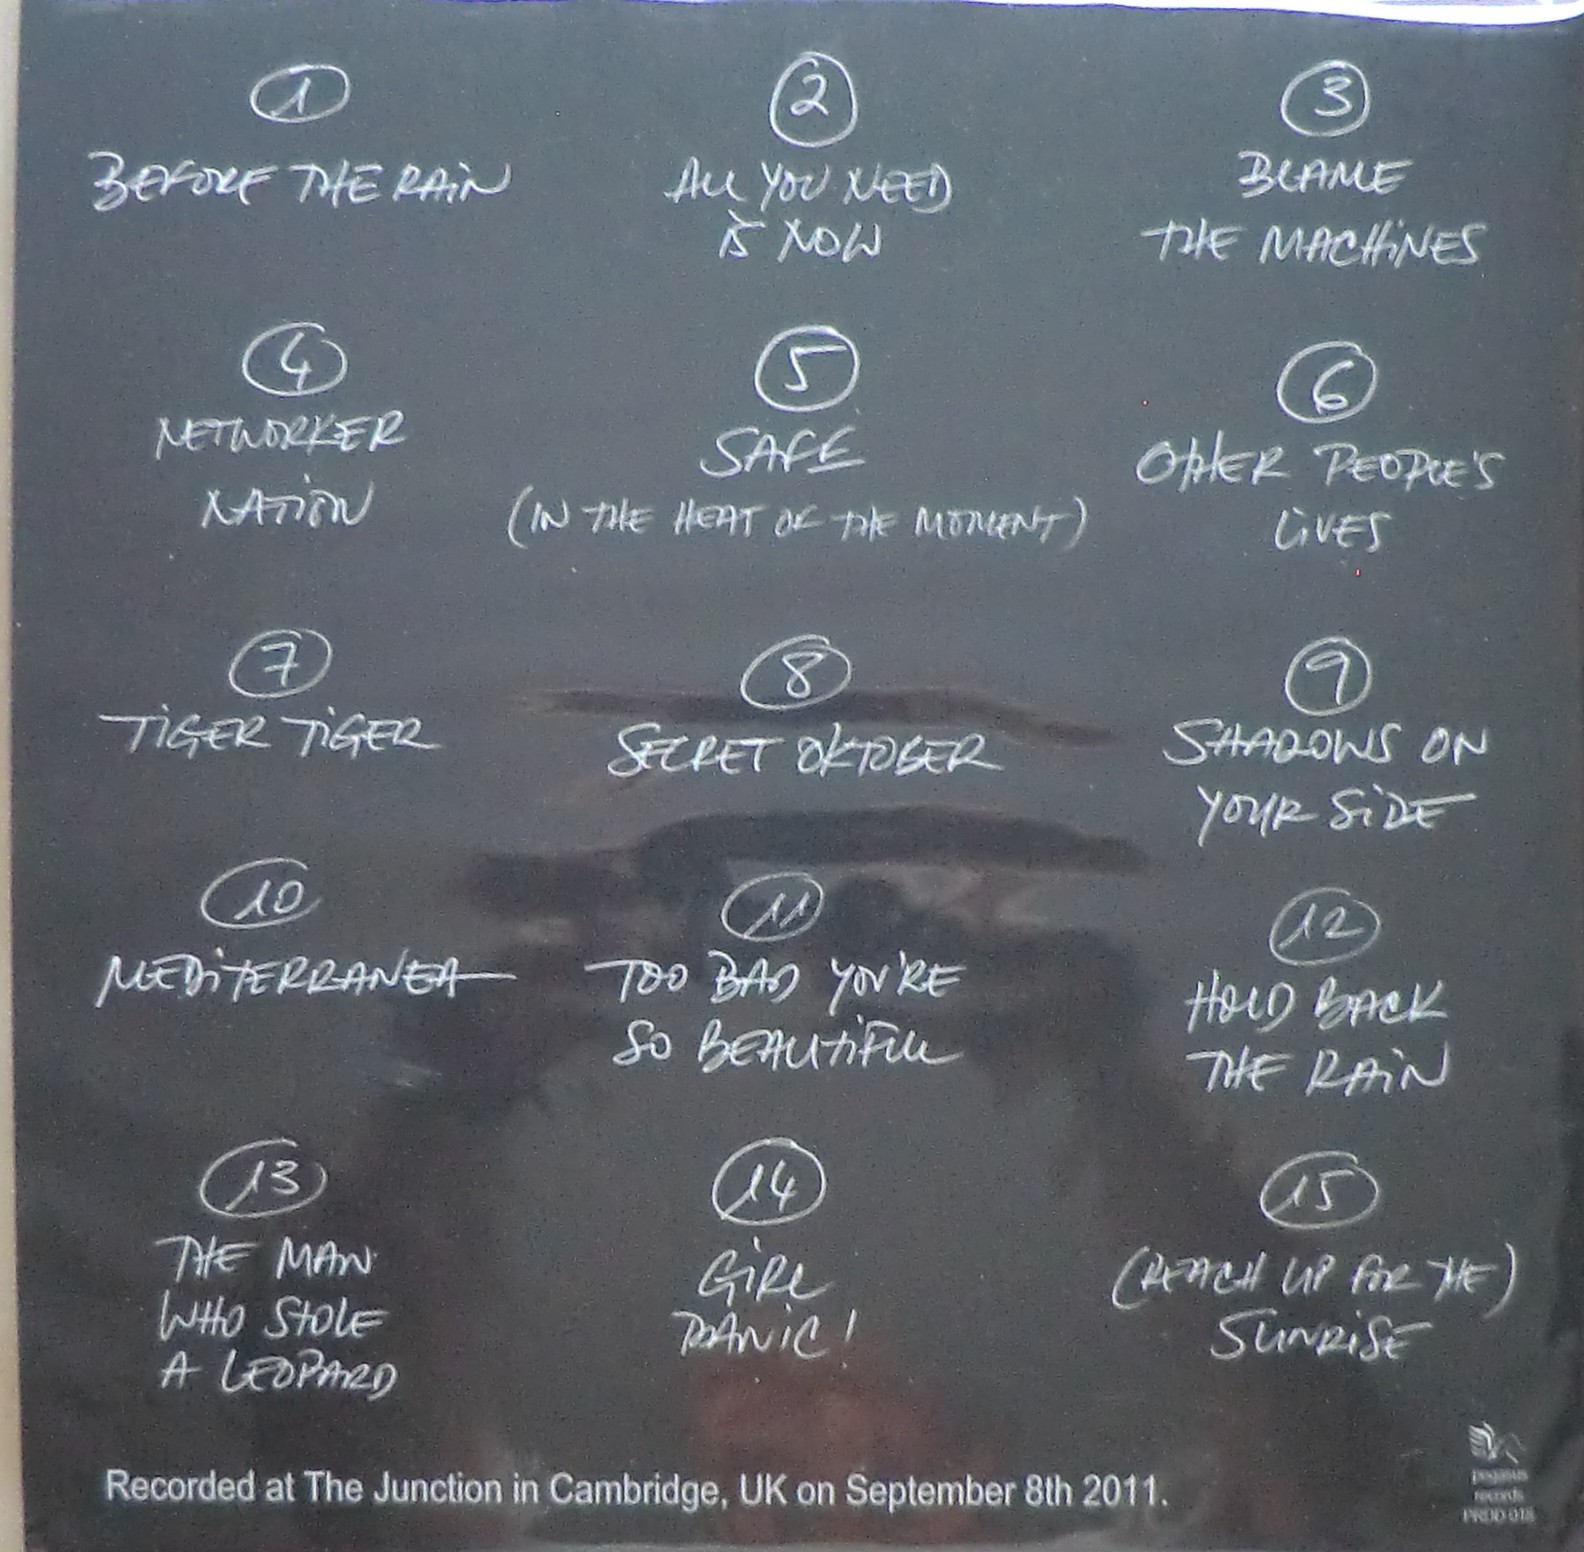 1
BEFORE THE RAiN
2
ALL YOU NEED
iS NOW
3
BLAME
THE MACHiNES
4
NETWORKER
NATiON
5
SAFE
(IN THE HEAT OF THE MOMENT)
6
OTHER PEOPLE'S
LiVES
7
TiGER TiGER
8
SECRET OKTOBER
9
SHADOWS ON
YOUR SiDE
10
MEDiTERRANEA
11
TOO BAD YOU'RE
SO BEAUTiFUL
12
HOLD BACK
THE RAiN
13
THE MAN
WHO STOLE
A LEOPARD
14
GiRL
PANiC!
15
(REACH UP FOR THE)
SUNRiSE
Recorded at The Junction in Cambridge, UK on September 8th 2011.
pegasus
records
PRDD 018